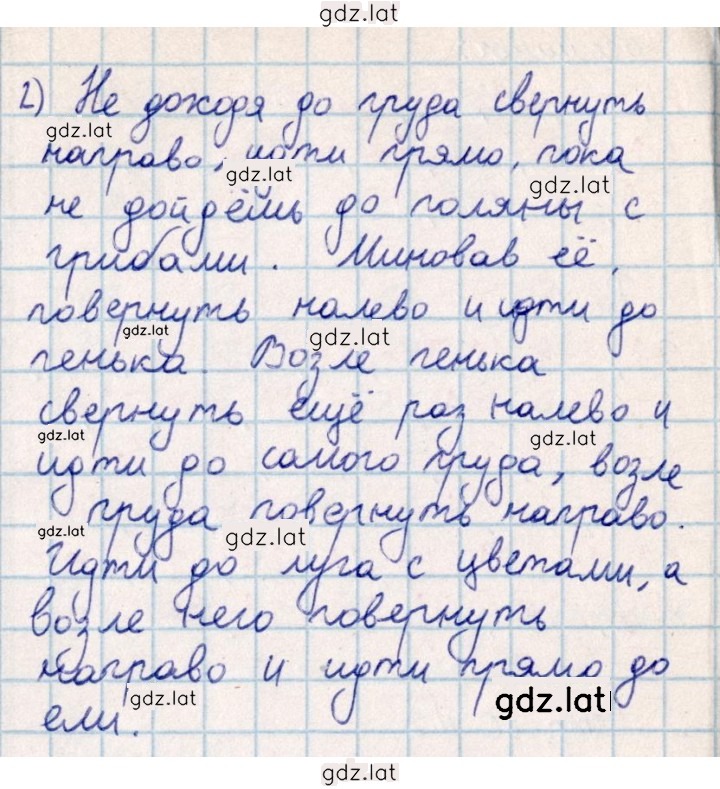 gdz.lat
2) Не доходя до пруда свернуть
gdz.lat
направо, идти прямо, пока
gdz.lat
gdz.lat
не дойдёшь до поляны с
грибами. Миновав её,
повернуть налево и идти до
gdz.lat
gdz.lat
пенька. Возле пенька
свернуть ещё раз налево и
gdz.lat
gdz.lat
идти до самого пруда, возле
пруда повернуть направо.
gdz.lat
gdz.lat
Идти до луга с цветами, а
возле него повернуть
направо и идти прямо до
gdz.lat
gdz.lat
ели.
gdz.lat